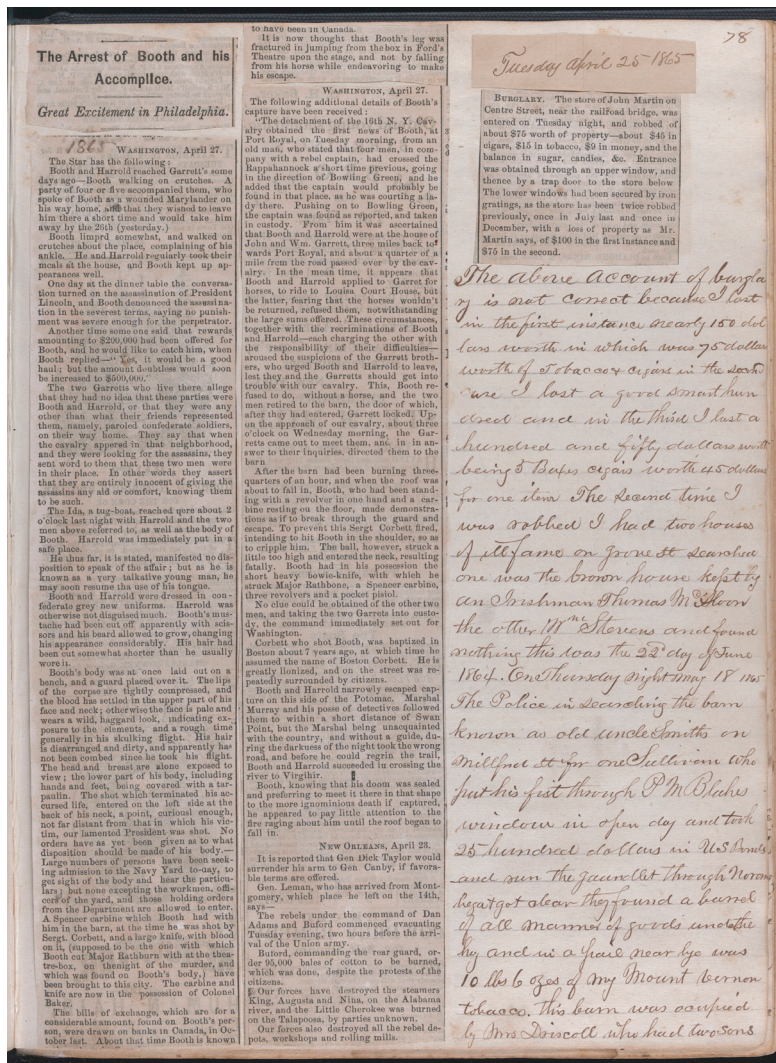 The Arrest of Booth and his
Accomplice.
Great Excitement in Philadelphia.
1865
WASHINGTON, April 27.
The Star has the following:
Booth and Harrold reached Garrett's some
days ago—Booth walking on crutches. A
party of four or five accompanied them, who
spoke of Booth as a wounded Marylander on
his way home, and that they wished to leave
him there a short time and would take him
away by the 26th (yesterday.)
Booth limprd somewhat, and walked on
crutches about the place, complaining of his
ankle. He and Harrold regularly took their
meals at the house, and Booth kept up ap-
pearances well.
One day at the dinner table the conversa-
tion turned on the assassination of President
Lincoln, and Booth denounced the assassina-
tion in the severest terms, saying no punish-
ment was severe enough for the perpetrator.
Another time some one said that rewards
amounting to $200,000 had been offered for
Booth, and he would like to catch him, when
Booth replied—"Yes, it would be a good
haul; but the amount doubtless would soon
be increased to $500,000."
The two Garretts who live there allege
that they had no idea that these parties were
Booth and Harrold, or that they were any
other than what their friends represented
them, namely, paroled confederate soldiers,
on their way home. They say that when
the cavalry appered in that neighborhood,
and they were looking for the assassins, they
sent word to them that these two men were
in their place. In other words they assert
that they are entirely innocent of giving the
assassins any aid or comfort, knowing them
to be such.
The Ida, a tug-boat, reached qere about 2
o'clock last night with Harrold and the two
men above referred to, as well as the body of
Booth. Harrold was immediately put in a
safe place.
He thus far, it is stated, manifested no dis-
position to speak of the affair; but as he is
known as a yery talkative young man, he
may soon resume tha use of his tongue.
Booth and Harrold were dressed in con-
federate grey new uniforms. Harrold was
otherwise not disguised much. Booth's mus-
tache had been cut off apparently with scis-
sors and his beard allowed to grow, changing
his appearance considerably. His hair had
been cut somewhat shorter than he usually
wore it.
Booth's body was at once laid out on a
bench, and a guard placed over it. The lips
of the corpse are tightly compressed, and
the blood has settled in the upper part of his
face and neck; otherwise the face is pale and
wears a wild, haggard look, indicating ex-
posure to the elements, and a rough time
generally in his skulking flight. His hair
is disarranged and dirty, and apparently has
not been combed since he took his flight.
The head and breast are alone exposed to
view; the lower part of his body, including
hands and feet, being covered with a tar-
paulin. The shot which terminated his ac-
cursed life, entered on the left side at the
back of his neck, a point, curiousl enough,
not far distant from that in which his vic-
tim, our lamented President was shot. No
orders have as yet been given as to what
disposition should be made of his body.—
Large numbers of persons have been seek-
ing admission to the Navy Yard to-ay, to
get sight of the body and hear the particu-
lars; but none excepting the workmen, offi-
cers of the yard, and those holding orders
from the Department are allowed to enter.
A Spencer carbine which Booth had with
him in the barn, at the time he was shot by
Sergt. Corbett, and a large knife, with blood
on it, (supposed to be the one with which
Booth cut Major Rathburn with at the thea-
tre-box, on thenight of the murder, and
which was found on Booth's body,) have
been brought to this city. The carbine and
knife are now in the possession of Colonel
Baker.
The bills of exchange, which are for a
considerable amount, found on Booth's per-
son, were drawn on banks in Canada, in Oc-
tober last. About that time Booth is known
to have been in Canada.
It is now thought that Booth's leg was
fractured in jumping from the box in Ford's
Theatre upon the stage, and not by falling
from his horse while endeavoring to make
his escape.
WASHINGTON, April 27.
The following additional details of Booth's
capture have been received:
"The detachment of the 16th N. Y. Cav-
alry obtained the first news of Booth, at
Port Royal, on Tuesday morning, from an
old man, who stated that four men, in com-
pany with a rebel captain, had crossed the
Rappahannock a short time previous, going
in the direction of Bowling Green, and he
added that the captain would probably be
found in that place, as he was courting a la-
dy there. Pushing on to Bowling Green,
the captain was found as reported, and taken
in custody. From him it was ascertained
that Booth and Harrold were at the house of
John and Wm. Garrett, three miles back to-
wards Port Royal, and about a quarter of a
mile from the road passed over by the cav-
alry. In the mean time, it appears that
Booth and Harrold applied to Garret for
horses, to ride to Louisa Court House, but
the latter, fearing that the horses wouldn't
be returned, refused them, notwithstanding
the large sums offered. These circumstances,
together with the recriminations of Booth
and Harrold—each charging the other with
the responsibility of their difficulties—
aroused the suspicions of the Garrett broth-
ers, who urged Booth and Harrold to leave,
lest they and the Garretts should get into
trouble with our cavalry. This, Booth re-
fused to do, without a horse, and the two
men retired to the barn, the door of which,
after they had entered, Garrett locked. Up-
on the approach of our cavalry, about three
o'clock on Wednesday morning, the Gar-
retts came out to meet them, and in in an-
swer to their inquiries, directed them to the
barn.
After the barn had been burning three-
quarters of an hour, and when the roof was
about to fall in, Booth, who had been stand-
ing with a revolver in one hand and a car-
bine resting on the floor, made demonstra-
tions as if to break through the guard and
escape. To prevent this Sergt Corbett fired,
intending to hit Booth in the shoulder, so as
to cripple him. The ball, however, struck a
little too high and entered the neck, resulting
fatally. Booth had in his possession the
short heavy bowie-knife, with which he
struck Major Rathbone, a Spencer carbine,
three revolvers and a pocket pisiol.
No clue could be obtained of the other two
men, and taking the two Garrets into custo-
dy, the command immediately set out for
Washington.
Corbett who shot Booth, was baptized in
Boston about 7 years ago, at which time he
assumed the name of Boston Corbett. He
is greatly lionized, and on the street was re-
peatedly surrounded by citizens.
Booth and Harrold narrowly escaped cap-
ture on this side of the Potomac. Marshal
Murrry and his posse of detectives followed
them to within a short distance of Swan
Point, but the Marshal being unacquainted
with the country, and without a guide, du-
ring the darkness of the night took the wrong
road, and before he could regrin the trail,
Booth and Harrold succeeded in crossing the
river to Virgihir.
Booth, knowing that his doom was sealed
and preferring to meet it there in that shape
to the more ignominious death if captured,
he appeared to pay little attention to the
fire raging about him until the roof began to
fall in.
NEW ORLEANS, April 23.
It is reported that Gen Dick Taylor would
surrender his arm to Gen Canby, if favora-
ble terms are offered.
Gen. Leman, who has arrived from Mont-
gomery, which place he left on the 14th,
says—
The rebels under the command of Dan
Adams and Buford commenced evacuating
Tuesday evening, two hours before the arri-
val of the Union army.
Buford, commanding the rear guard, or-
der 95,000 bales of cotton to be burned,
which was done, despite the protests of the
citizens.
Our forces have destroyed the steamers
King, Augusta and Nina, on the Alabama
river, and the Little Cherokee was burned
on the Talapoosa, by parties unknown.
Our forces also destroyed all the rebel de-
pots, workshops and rolling mills.
78
Tuesday April 25 1865
BURGLARY. The store of John Martin on
Centre Street, near the railroad bridge, was
entered on Tuesday night, and robbed of
about $75 worth of property—about $45 in
cigars, $15 in tobacco, $9 in money, and the
balance in sugar, candies, &c. Entrance
was obtained through an upper window, and
thence by a trap door to the store below
The lower windows had been secured by iron
gratings, as the store has been twice robbed
previously, once in July last and once in
December, with a loss of property as Mr.
Martin says, of $100 in the first instance and
$75 in the second.
The above account of burgla
ry is not correct because I lost
in the first instance nearly 150 dol
lars worth in which was 75 dollars
worth of Tobacco & cigars in the second
case I lost a good smart hun
dred and in the third I lost a
hundred and fifty dollars worth
being 5 Boxes cigars worth 45 dollars
for one item The second time I
was robbed I had two houses
of ill fame on grove st searched
one was the brown house kept by
an Irishman Thomas
the other Wm Stevens and found
nothing this was the 22d day of June
1864. On Thursday night May 18 1865
The Police in searching the barn
known as old uncle Smiths on
Millford st for one Sullivan who
put his fist through P M Blakes
window in open day and took
25 hundred dollars in U S Bonds
and run the gauntlet through
got clear they found a barrel
of all manner of goods under the
hay and in a pail near by was
10 lbs 6 ozes of my Mount Vernon
tobacco. this barn was occupied
by Mrs Driscoll who had two sons